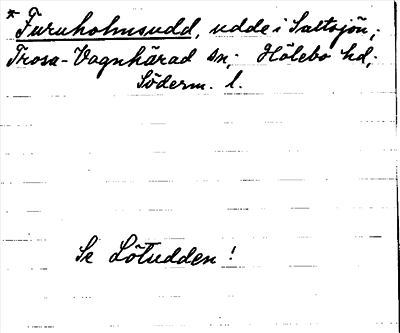 * Furuholmsudd, udde i Saltsjön;
Trosa-Vagnhärad sn; Hölebo hd;
Söderm. l.
Se Lötudden!